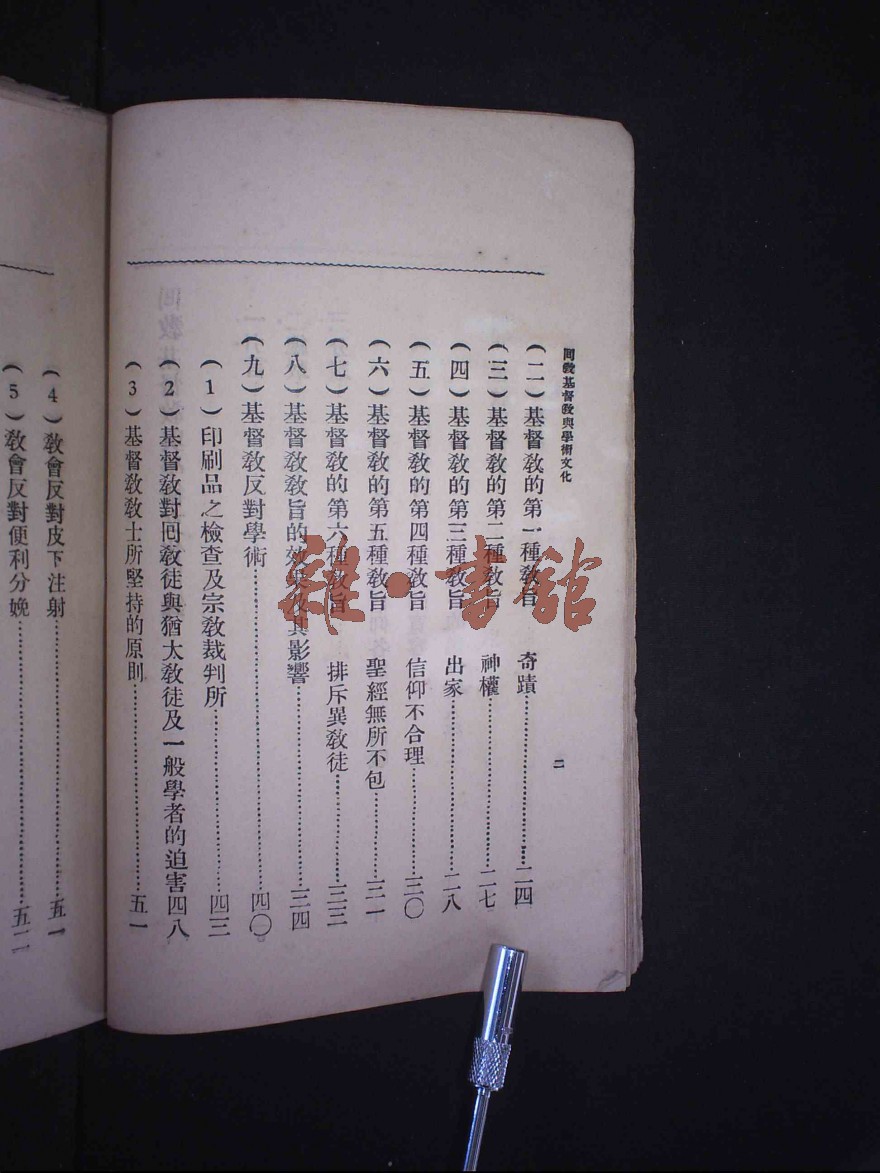 回敎基督敎與學術文化
二
(二)基督敎的第一種敎旨 奇蹟……二四
(三)基督敎的第二種敎旨 神權……二七
(四)基督敎的第三種敎旨 出家……二八
(五)基督敎的第四種敎旨 信仰不合理……三〇
(六)基督敎的第五種敎旨 聖經無所不包……三一
(七)基督敎的第六種敎旨 排斥異敎徒……三三
(八)基督敎敎旨的效果及其影響……三四
(九)基督敎反對學術……四〇
(1)印刷品之檢查及宗敎裁判所……四三
(2)基督敎對回敎徒與猶太敎徒及一般學者的迫害四八
(3)基督敎敎士所堅持的原則……五一
(4)敎會反對皮下注射……五一
(5)敎會反對便利分娩……五二
雜·書館